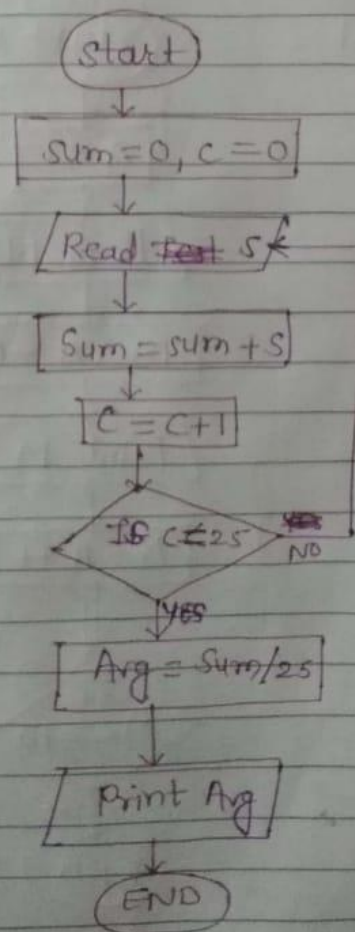 Start
sum=0, c=0
Read S
Sum = sum + S
C = C+1
If C 25
NO
YES
Avg = Sum/25
Print Avg
END